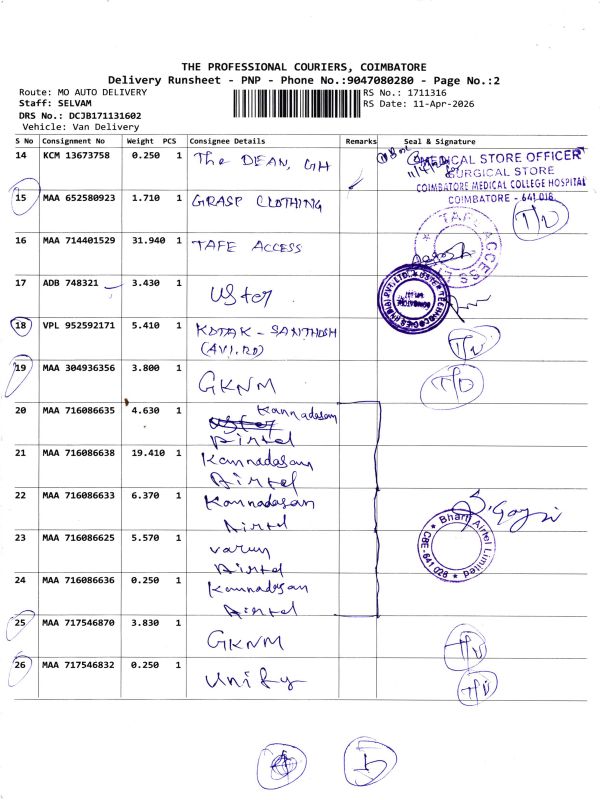 THE PROFESSIONAL COURIERS, COIMBATORE
Delivery Runsheet - PNP - Phone No.:9047080280 - Page No.:2
Route: MO AUTO DELIVERY
RS No.: 1711316
Staff: SELVAM
RS Date: 11-Apr-2026
DRS No.: DCJB171131602
Vehicle: Van Delivery
S No Consignment No Weight PCS Consignee Details Remarks Seal & Signature
14 KCM 13673758 0.250 1 The DEAN, GH
MEDICAL STORE OFFICER
SURGICAL STORE
COIMBATORE MEDICAL COLLEGE HOSPITAL
COIMBATORE - 641 018
15 MAA 652580923 1.710 1 GRASP CLOTHING
16 MAA 714401529 31.940 1 TAFE ACCESS
TAFE ACCESS
17 ADB 748321 3.430 1 Uster
18 VPL 952592171 5.410 1 KOTAK - SANTHOSH
(AVI.RD)
19 MAA 304936356 3.800 1 GKNM T/D
20 MAA 716086635 4.630 1 Kannadasan
Airtel
21 MAA 716086638 19.410 1 Kannadasan
Airtel
22 MAA 716086633 6.370 1 Kannadasan
Airtel
23 MAA 716086625 5.570 1 Varun
Airtel
24 MAA 716086636 0.250 1 Kannadasan
Airtel
Bharti Airtel Limited
CBE-641 028
25 MAA 717546870 3.830 1 GKNM T/D
26 MAA 717546832 0.250 1 Unify T/D